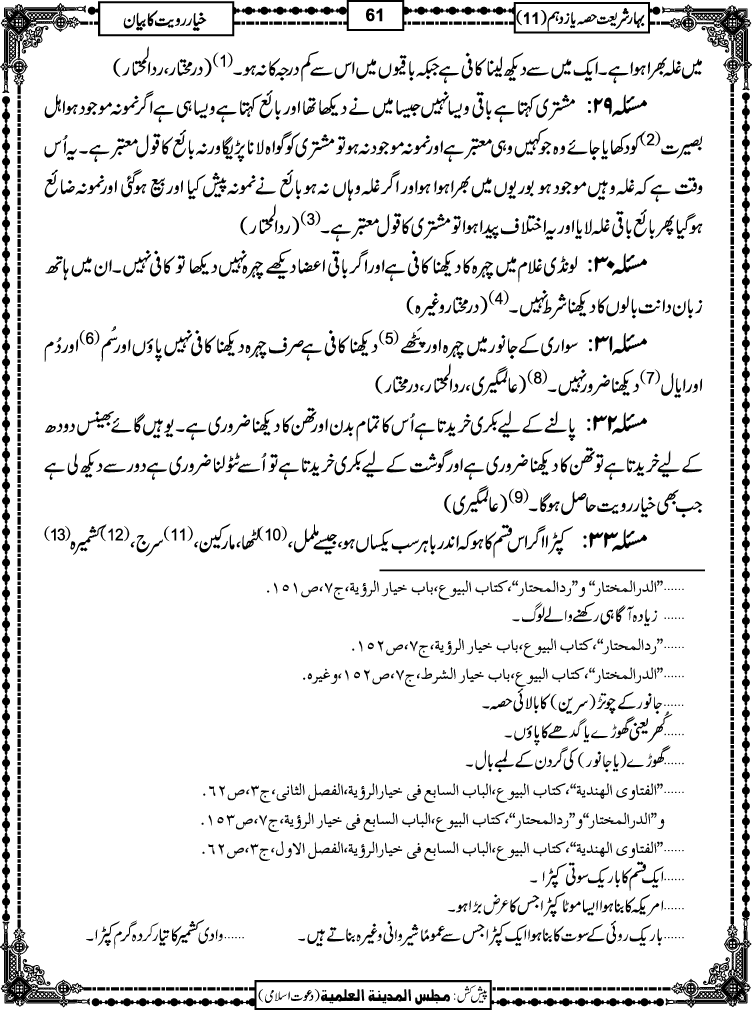 بہارشریعت حصہ یازدہم (11)
61
خیار رویت کا بیان
میں غلہ بھرا ہوا ہے۔ ایک میں سے دیکھ لینا کافی ہے جبکہ باقیوں میں اس سے کم درجہ کا نہ ہو۔(1) (درمختار، ردالمحتار)
مسئلہ ۲۹: مشتری کہتا ہے باقی ویسا نہیں جیسا میں نے دیکھا تھا اور بائع کہتا ہے ویسا ہی ہے اگر نمونہ موجود ہو اہل
بصیرت(2) کو دکھایا جائے وہ جو کہیں وہی معتبر ہے اور نمونہ موجود نہ ہو تو مشتری کو گواہ لانا پڑیگا ورنہ بائع کا قول معتبر ہے۔ یہ اُس
وقت ہے کہ غلہ وہیں موجود ہو بوریوں میں بھرا ہوا ہو اور اگر غلہ وہاں نہ ہو بائع نے نمونہ پیش کیا اور بیع ہوگئی اور نمونہ ضائع
ہوگیا پھر بائع باقی غلہ لایا اور یہ اختلاف پیدا ہوا تو مشتری کا قول معتبر ہے۔(3) (ردالمحتار)
مسئلہ ۳۰: لونڈی غلام میں چہرہ کا دیکھنا کافی ہے اور اگر باقی اعضا دیکھے چہرہ نہیں دیکھا تو کافی نہیں۔ ان میں ہاتھ
زبان دانت بالوں کا دیکھنا شرط نہیں۔(4) (درمختار وغیرہ)
مسئلہ ۳۱: سواری کے جانور میں چہرہ اور پٹھے(5) دیکھنا کافی ہے صرف چہرہ دیکھنا کافی نہیں پاؤں اور سُم(6) اور دُم
اور ایال(7) دیکھنا ضرور نہیں۔(8) (عالمگیری، ردالمحتار، درمختار)
مسئلہ ۳۲: پالنے کے لیے بکری خریدتا ہے اُس کا تمام بدن اور تھن کا دیکھنا ضروری ہے۔ یوہیں گائے بھینس دودھ
کے لیے خریدتا ہے تو تھن کا دیکھنا ضروری ہے اور گوشت کے لیے بکری خریدتا ہے تو اُسے ٹٹولنا ضروری ہے دور سے دیکھ لی ہے
جب بھی خیار رویت حاصل ہوگا۔(9) (عالمگیری)
مسئلہ ۳۳: کپڑا اگر اس قسم کا ہو کہ اندر باہر سب یکساں ہو، جیسے ململ،(10) لٹھا، مارکین،(11) سرج،(12) کشمیرہ(13)
......”الدرالمختار“ و”ردالمحتار“،کتاب البیوع،باب خیار الرؤیة،ج۷،ص۱۵۱.
...... زیادہ آگاہی رکھنے والے لوگ۔
......”ردالمحتار“،کتاب البیوع،باب خیار الرؤیة،ج۷،ص۱۵۲.
......”الدرالمختار“،کتاب البیوع،باب خیار الشرط،ج۷،ص۱۵۲،وغیره.
......جانور کے چوتڑ (سرین) کا بالائی حصہ۔
......کُھر یعنی گھوڑے یا گدھے کا پاؤں۔
......گھوڑے (یا جانور) کی گردن کے لمبے بال۔
......”الفتاوی الهندیة“،کتاب البیوع،الباب السابع فی خیارالرؤیة،الفصل الثانی،ج۳،ص۶۲.
و”الدرالمختار“و”ردالمحتار“،کتاب البیوع،الباب السابع فی خیار الرؤیة،ج۷،ص۱۵۳.
......”الفتاوی الهندیة“،کتاب البیوع،الباب السابع فی خیارالرؤیة،الفصل الاول،ج۳،ص۶۲.
......ایک قسم کا باریک سوتی کپڑا۔
......امریکہ کا بنا ہوا ایسا موٹا کپڑا جس کا عرض بڑا ہو۔
......باریک روئی کے سوت کا بنا ہوا ایک کپڑا جس سے عموماً شیروانی وغیرہ بناتے ہیں۔ ......وادی کشمیر کا تیار کردہ گرم کپڑا۔
پیش کش: مجلس المدینة العلمیة (دعوت اسلامی)